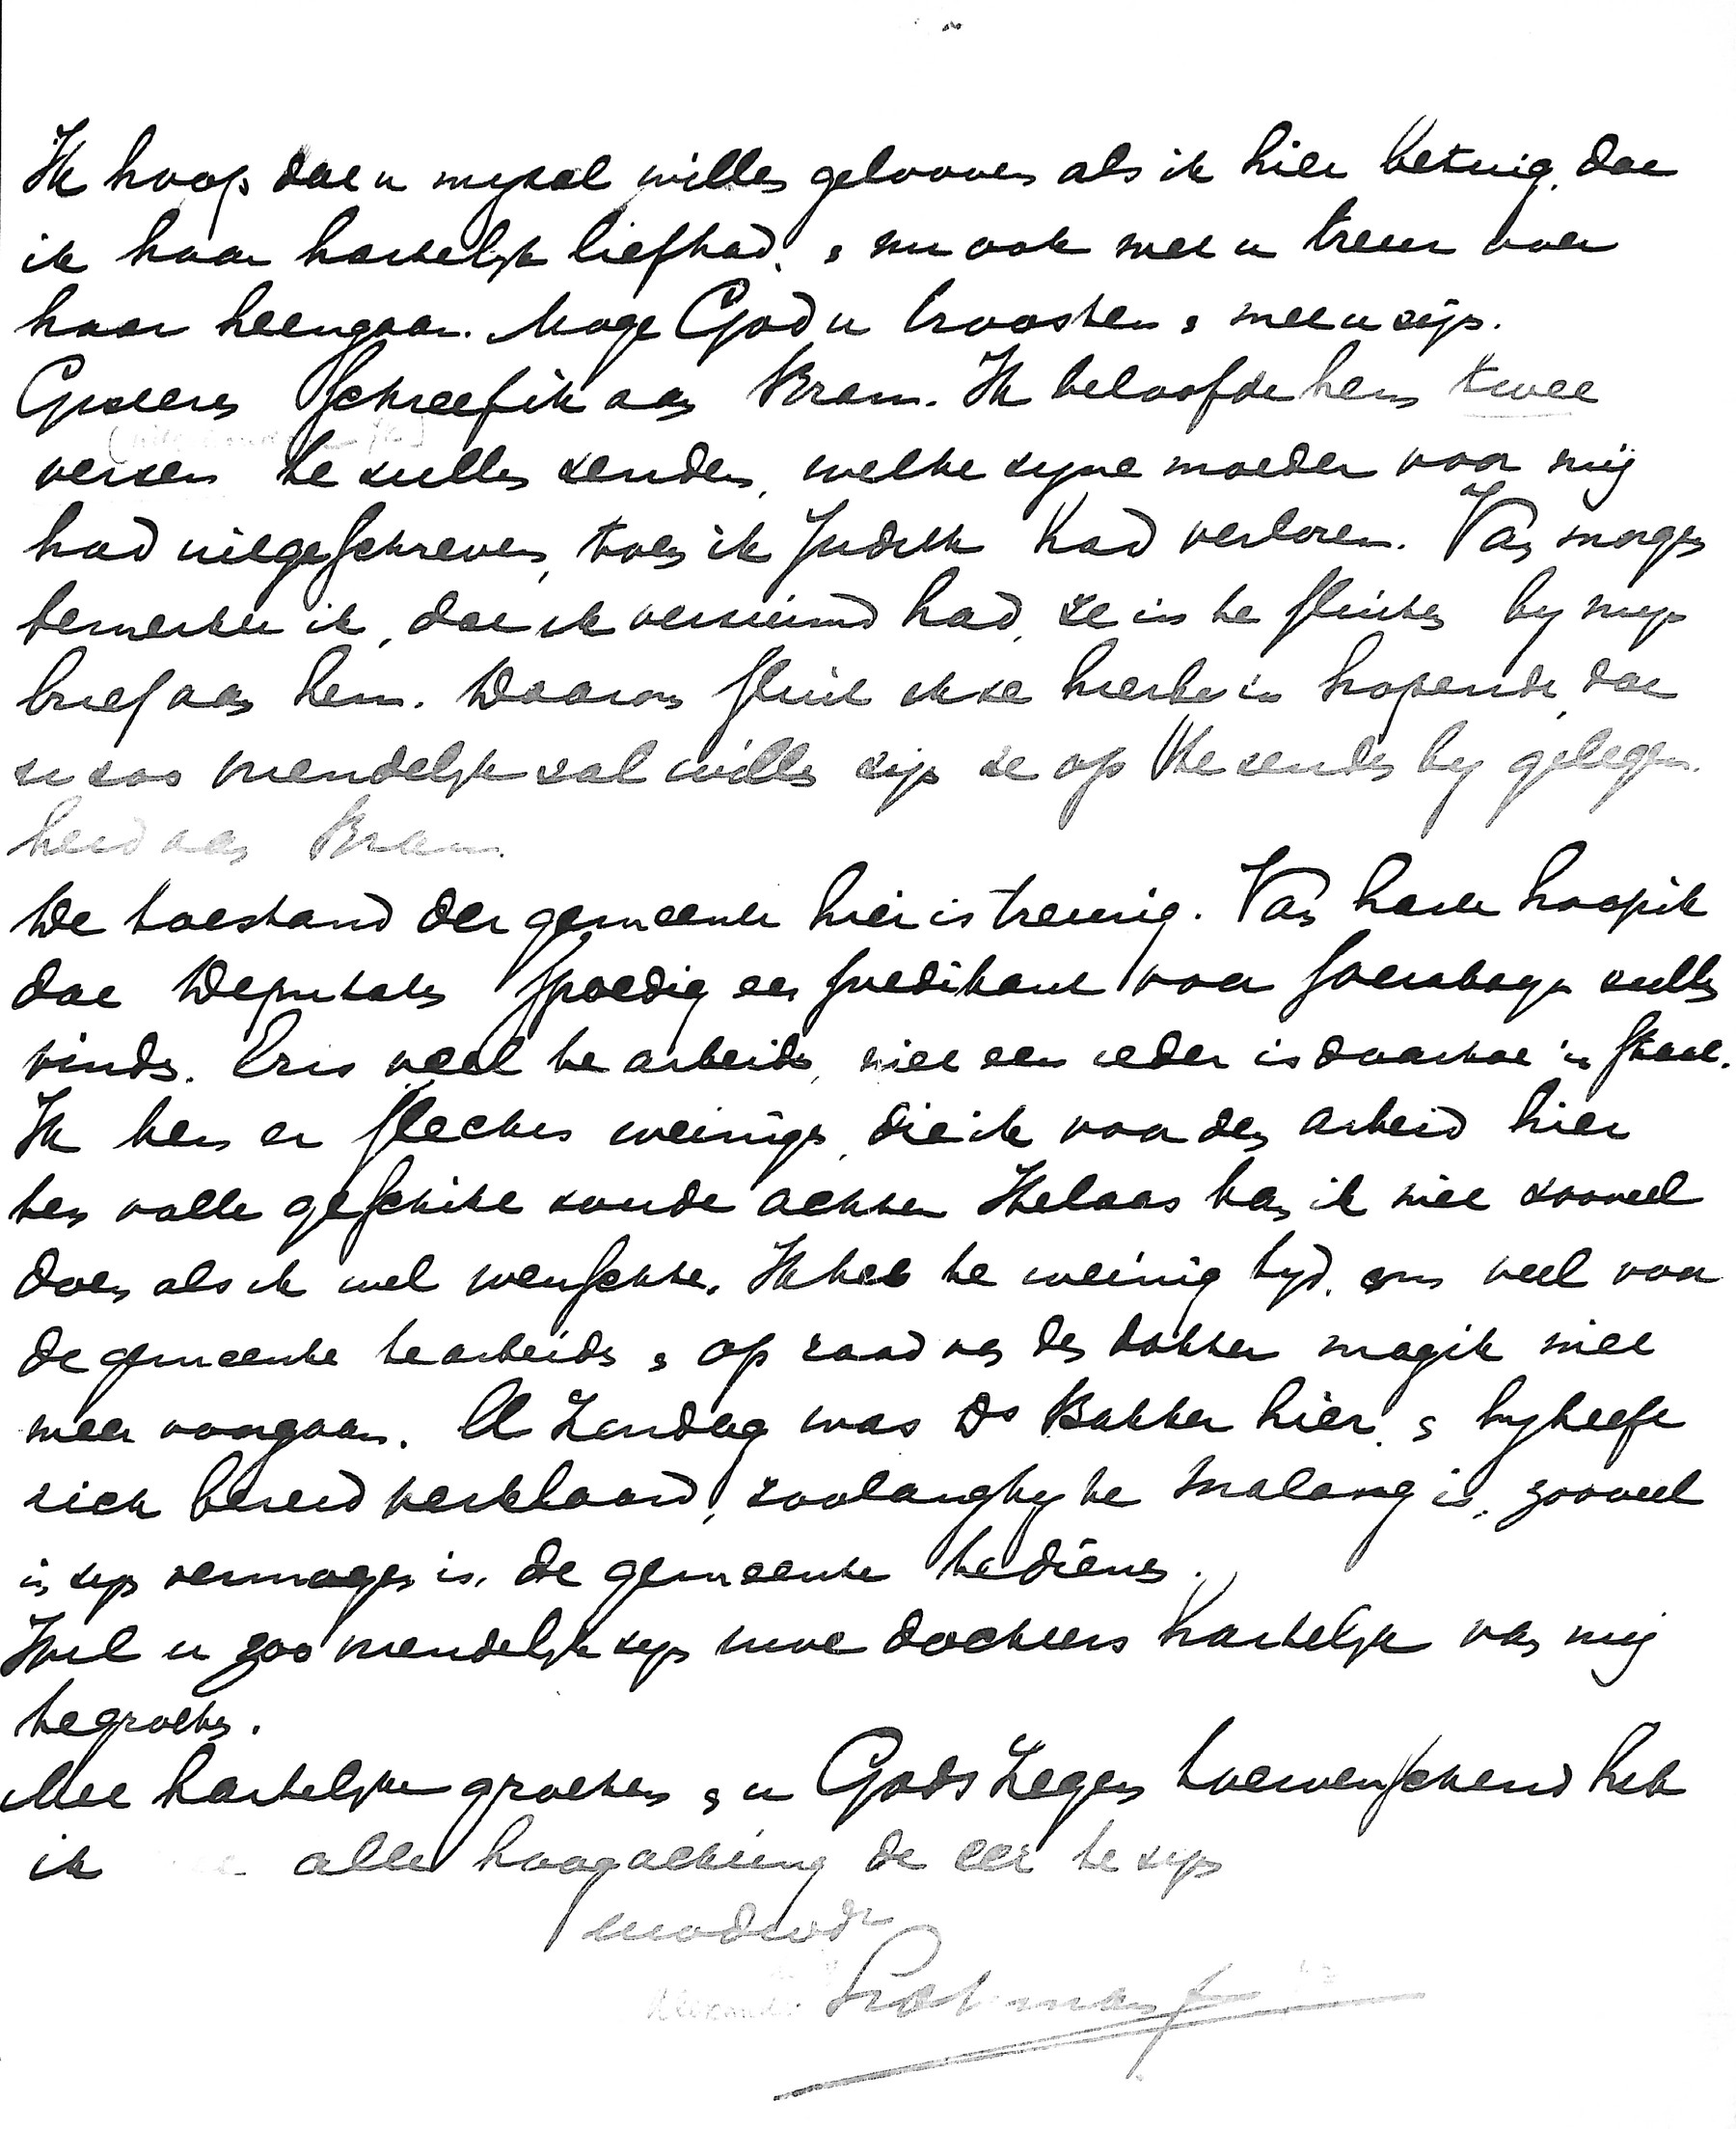 Ik hoop dat u mij zal willen gelooven als ik hier betuig, dat
ik haar hartelijk liefhad, & nu ook met u treur over
haar heengaan. Moge God u troosten & met u zijn.
Gisteren schreef ik aan Bram. Ik beloofde hem twee
verzen te zullen zenden, welke zijne moeder voor mij
had uitgeschreven, toen ik Judith had verloren. Van morgen
bemerkte ik, dat ik verzuimd had, ze in te sluiten bij mijn
brief aan hem. Daarom sluit ik ze hierbij in hopende, dat
u zoo vriendelijk zal willen zijn ze op te zenden bij gelegen-
heid aan Bram.
De toestand der gemeente hier is treurig. Van harte hoop ik
dat Deputaten spoedig een predikant voor Soerabaya zullen
vinden. Er is veel te arbeiden, niet een ieder is daartoe in staat.
Ik ken er slechts weinigen, die ik voor den arbeid hier
ten volle geschikt zoude achten. Helaas kan ik niet zooveel
doen als ik wel wenschte. Ik heb te weinig tijd, om veel voor
de gemeente te arbeiden & op raad van den dokter mag ik niet
meer voorgaan. Zondag was Ds Bakker hier, & hij heeft
zich bereid verklaard, zoolang hij te Malang is, zooveel
in zijn vermogen is, de gemeente te dienen.
Wil u zoo vriendelijk zijn uwe dochters hartelijk van mij
te groeten.
Met hartelijke groeten & u Gods Zegen toewenschend heb
ik alle hoogachting de eer te zijn
uw dw dr